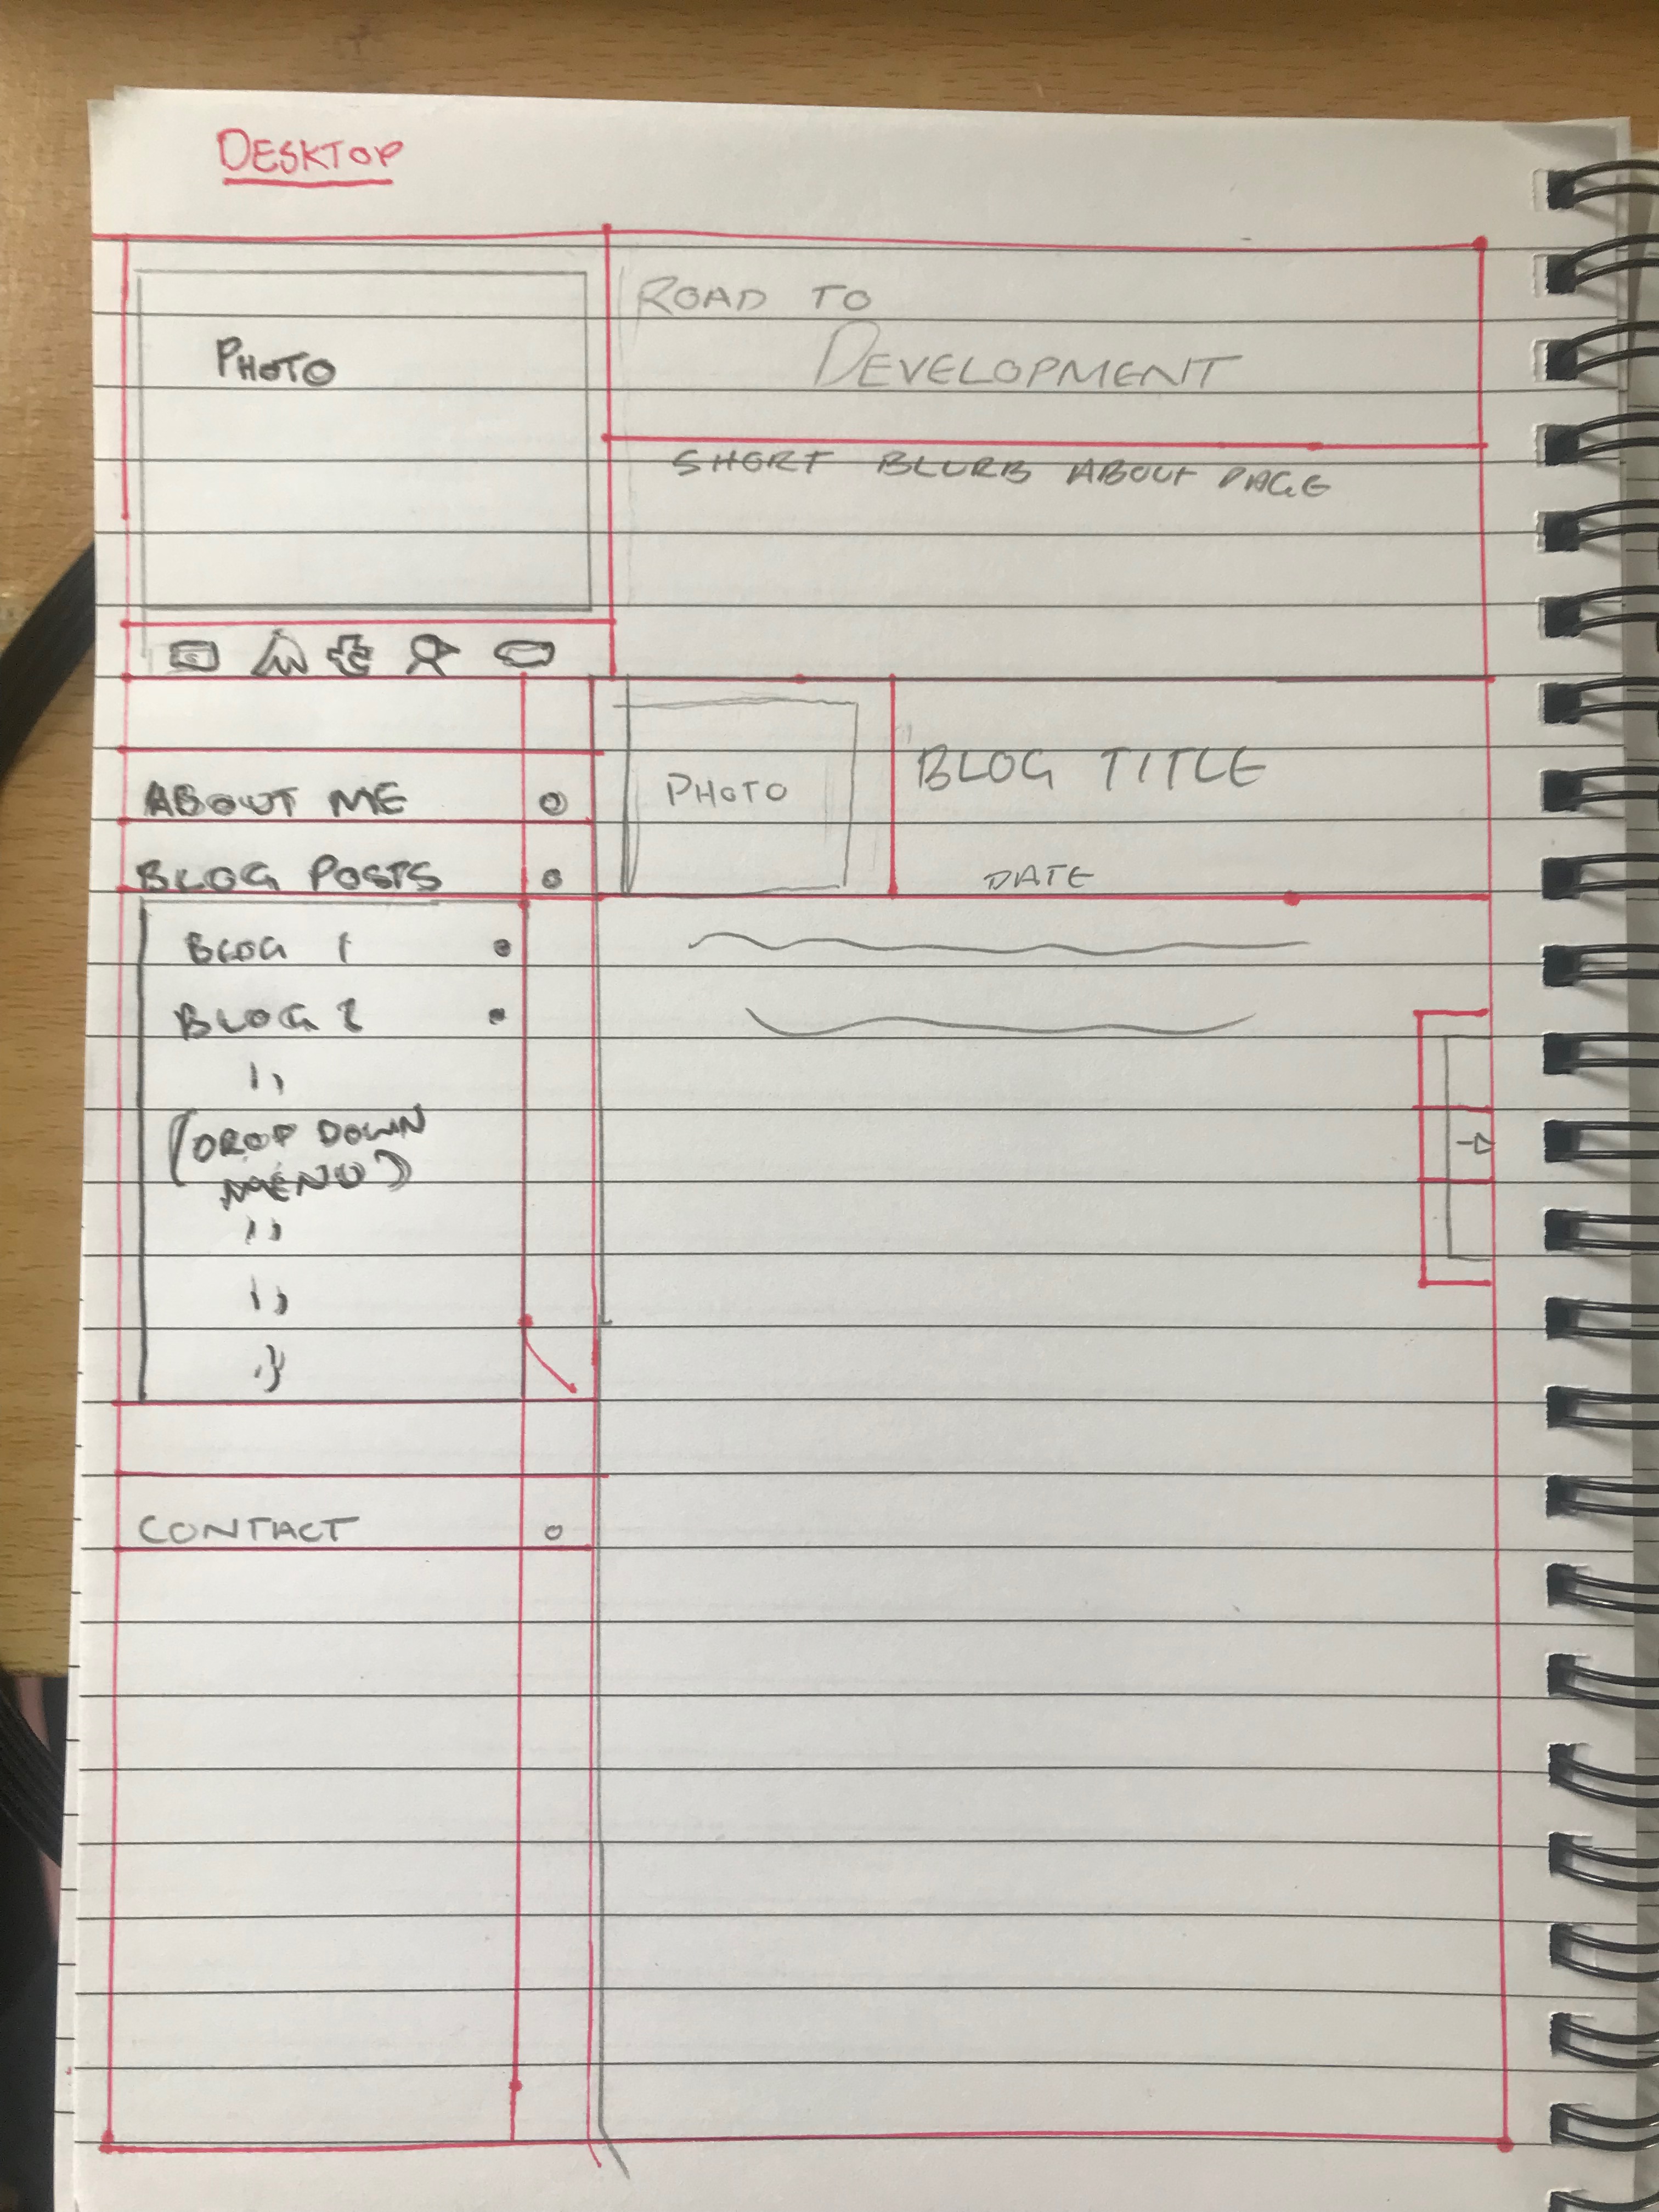 DESKTOP
PHOTO
ROAD TO
DEVELOPMENT
SHORT BLURB ABOUT PAGE
ABOUT ME
BLOG POSTS
BLOG 1
BLOG 2
(DROP DOWN
MENU)
CONTACT
PHOTO
BLOG TITLE
DATE